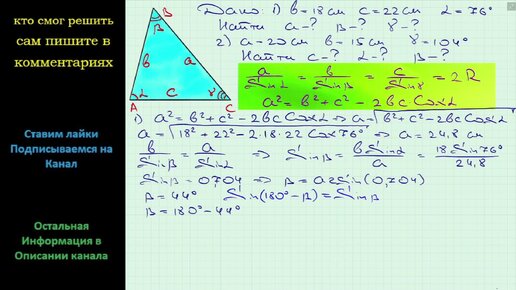 кто смог решить
сам пишите в
комментариях
Ставим лайки
Подписываемся на
Канал
Остальная
Информация в
Описании канала
B
β
в a
α c γ
A C
Дано 1) в=18см c=22см α=76°
Найти a-? β-? γ-?
2) a=20см в=15см γ=104°
Найти c-? α-? β-?
a/Sinα = в/Sinβ = c/Sinγ = 2R
a²=в²+c²-2вc Cosα
1) a²=в²+c²-2вc Cosα => a=√в²+c²-2вc Cosα
a=√18²+22²-2·18·22 Cos76° => a=24,8 см
в/Sinβ = a/Sinα => Sinβ = вSinα/a = 18Sin76°/24,8
Sinβ=0,704 => β=arcsin(0,704)
β=44° Sin(180°-β)=Sinβ
β=180°-44°